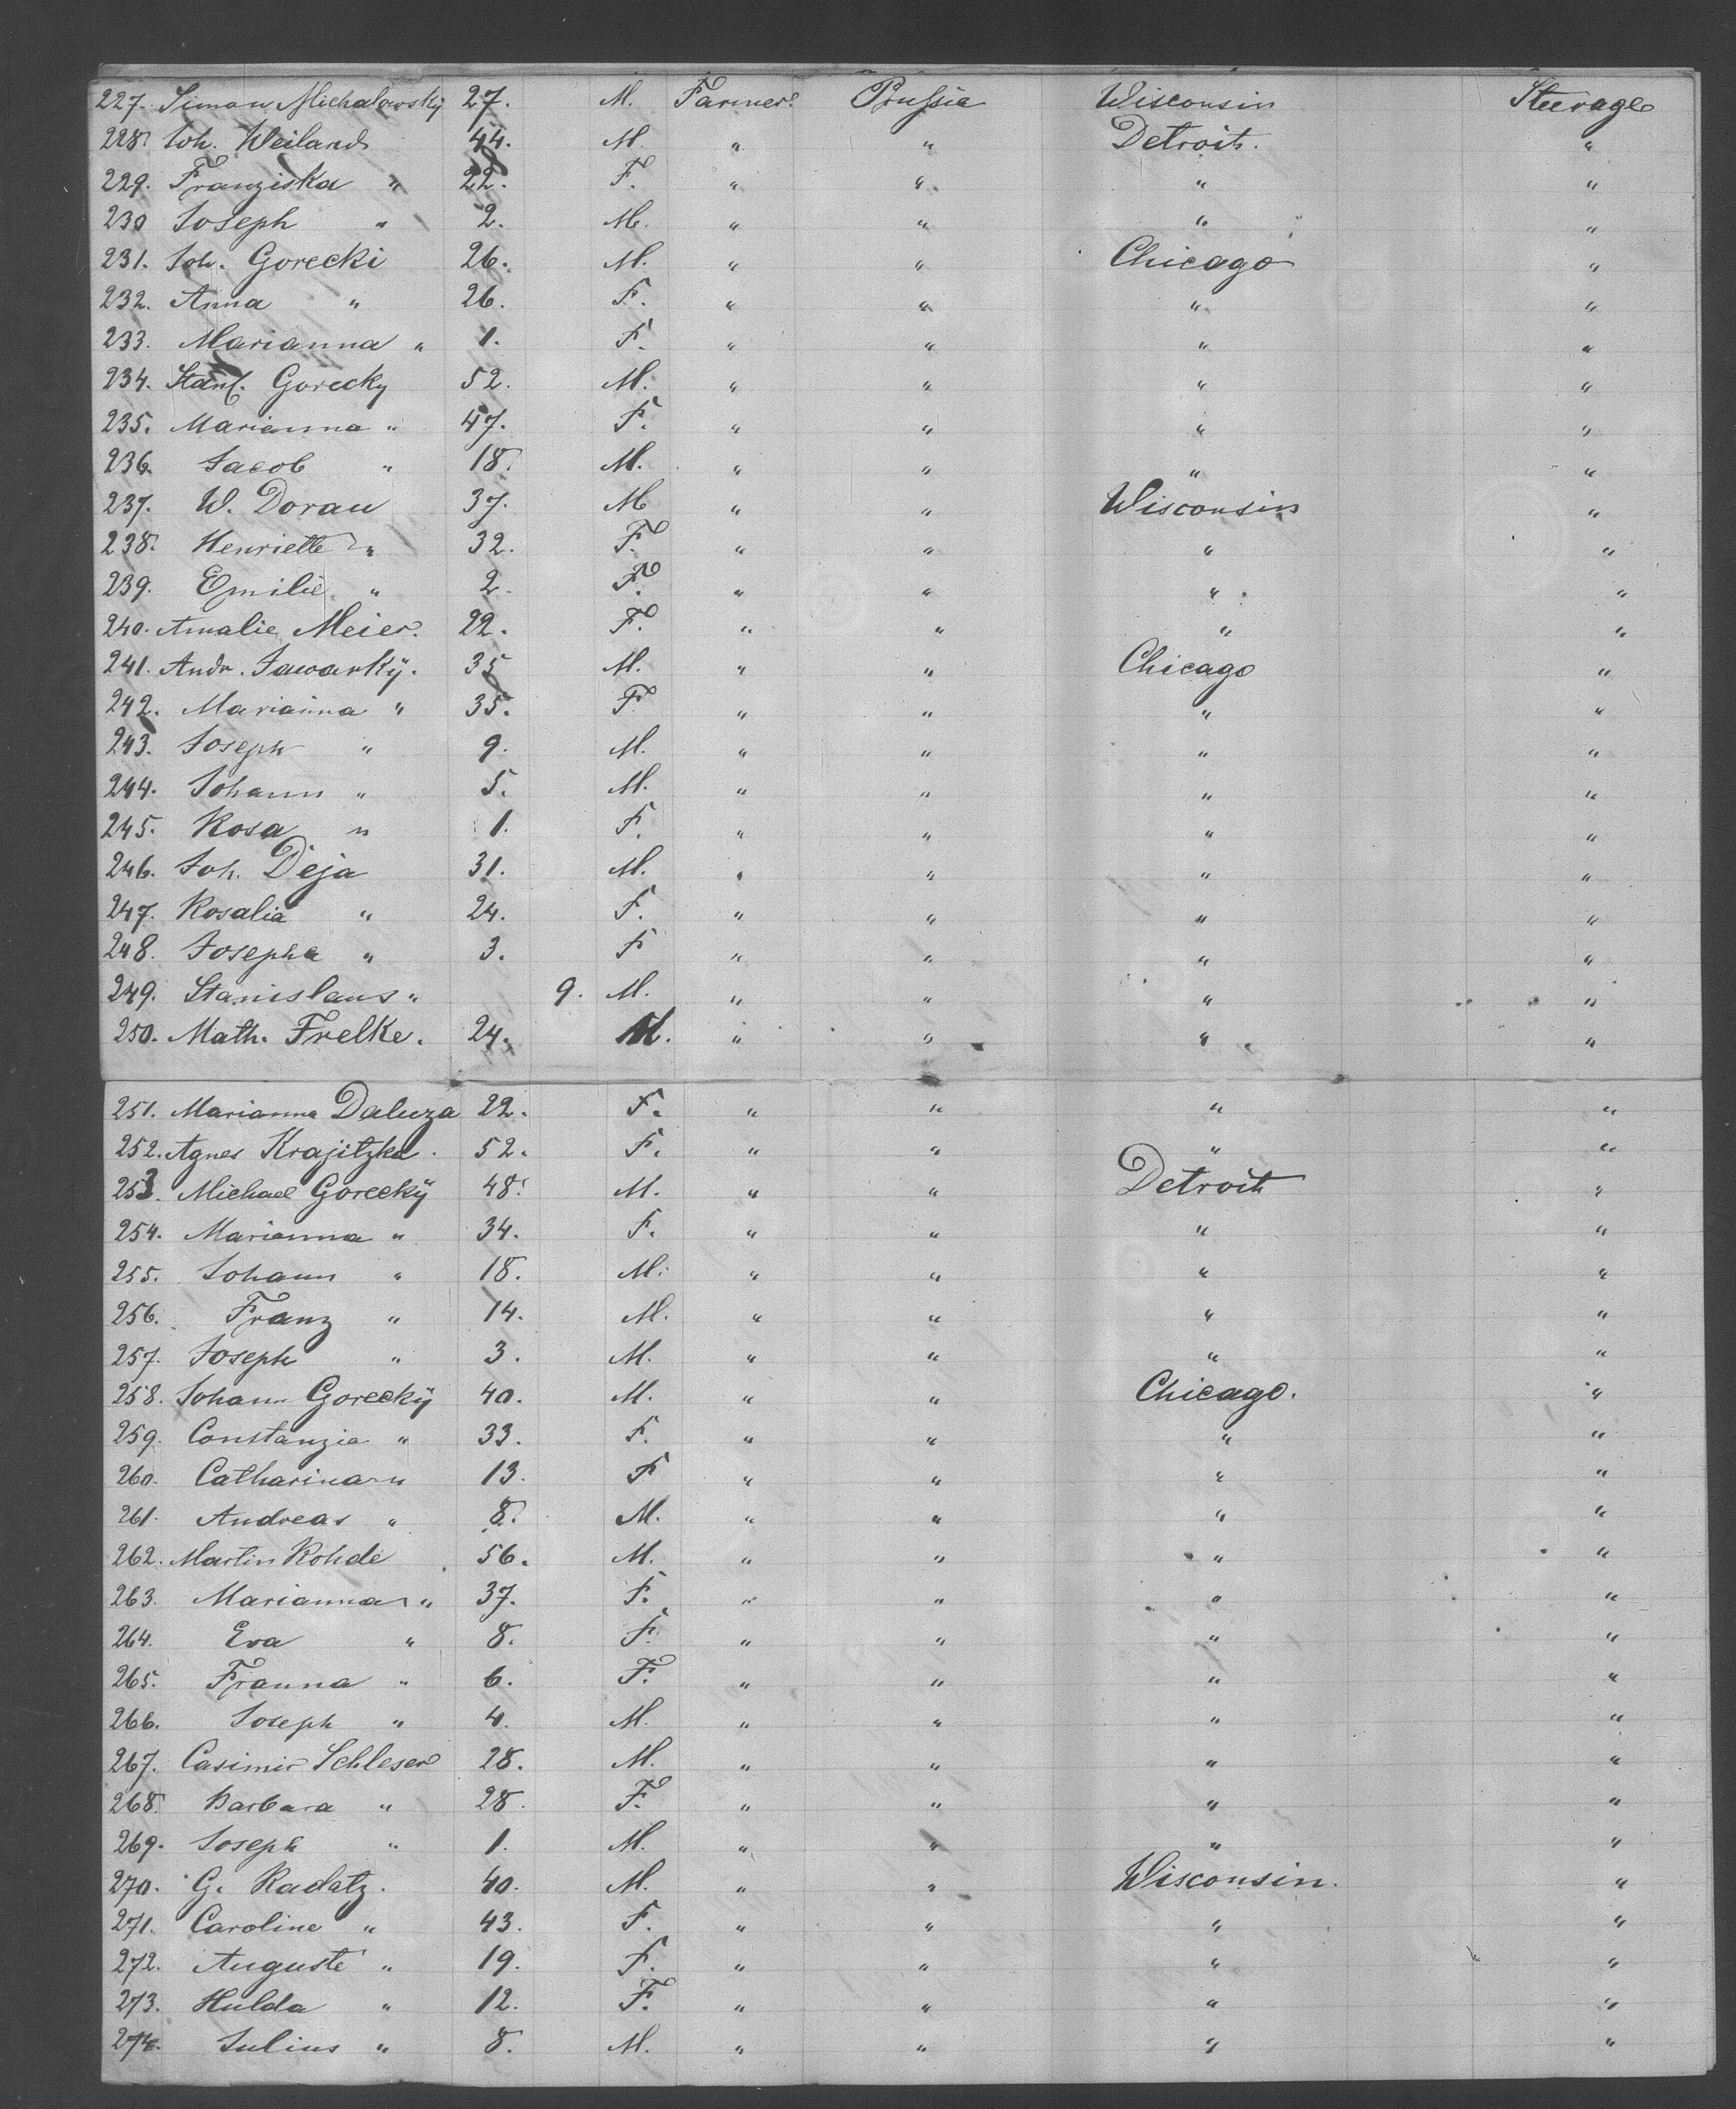 227. Simon Michalowsky 27. M. Farmer. Prussia Wisconsin Steerage
228. Joh. Weiland 44. M. " " Detroit. "
229. Franziska " 22. F. " " " "
230 Joseph " 2. M. " " " "
231. Joh. Gorecki 26. M. " " Chicago "
232. Anna " 26. F. " " " "
233. Marianna " 1. F. " " " "
234. Gorecky 52. M. " " " "
235. Marianna " 47. F. " " " "
236. Jacob " 18. M. " " " "
237. W. Dorau 37. M " " Wisconsin "
238. Henriette " 32. F. " " " "
239. Emilie " 2. F. " " " "
240. Amalie Meier. 22. F. " " " "
241. Andr. Jawarkÿ. 35 M. " " Chicago "
242. Marianna " 35. F. " " " "
243. Joseph " 9. M. " " " "
244. Johann " 5. M. " " " "
245. Rosa " 1. F. " " " "
246. Joh. Deja 31. M. " " " "
247. Rosalia " 24. F. " " " "
248. Josepha " 3. F " " " "
249. Stanislaus " 9. M. " " " "
250. Math. Frelke. 24. M. " " " "
251. Marianna Daluza 22. F. " " " "
252. Agnes Krajitzka. 52. F. " " " "
253. Michael Goreckÿ 48. M. " " Detroit "
254. Marianna " 34. F. " " " "
255. Johann " 18. M. " " " "
256. Franz " 14. M. " " " "
257. Joseph " 3. M. " " " "
258. Johann Goreckÿ 40. M. " " Chicago. "
259. Constanzia " 33. F. " " " "
260. Catharina " 13. F " " " "
261. Andreas " 8. M. " " " "
262. Martin Rohde 56. M. " " " "
263. Marianna " 37. F. " " " "
264. Eva " 8. F. " " " "
265. Franna " 6. F. " " " "
266. Joseph " 4. M. " " " "
267. Casimir Schleser 28. M. " " " "
268. Barbara " 28. F. " " " "
269. Joseph " 1. M. " " " "
270. G. Radatz. 40. M. " " Wisconsin. "
271. Caroline " 43. F. " " " "
272. Auguste " 19. F. " " " "
273. Hulda " 12. F. " " " "
274. Julius " 8. M. " " " "